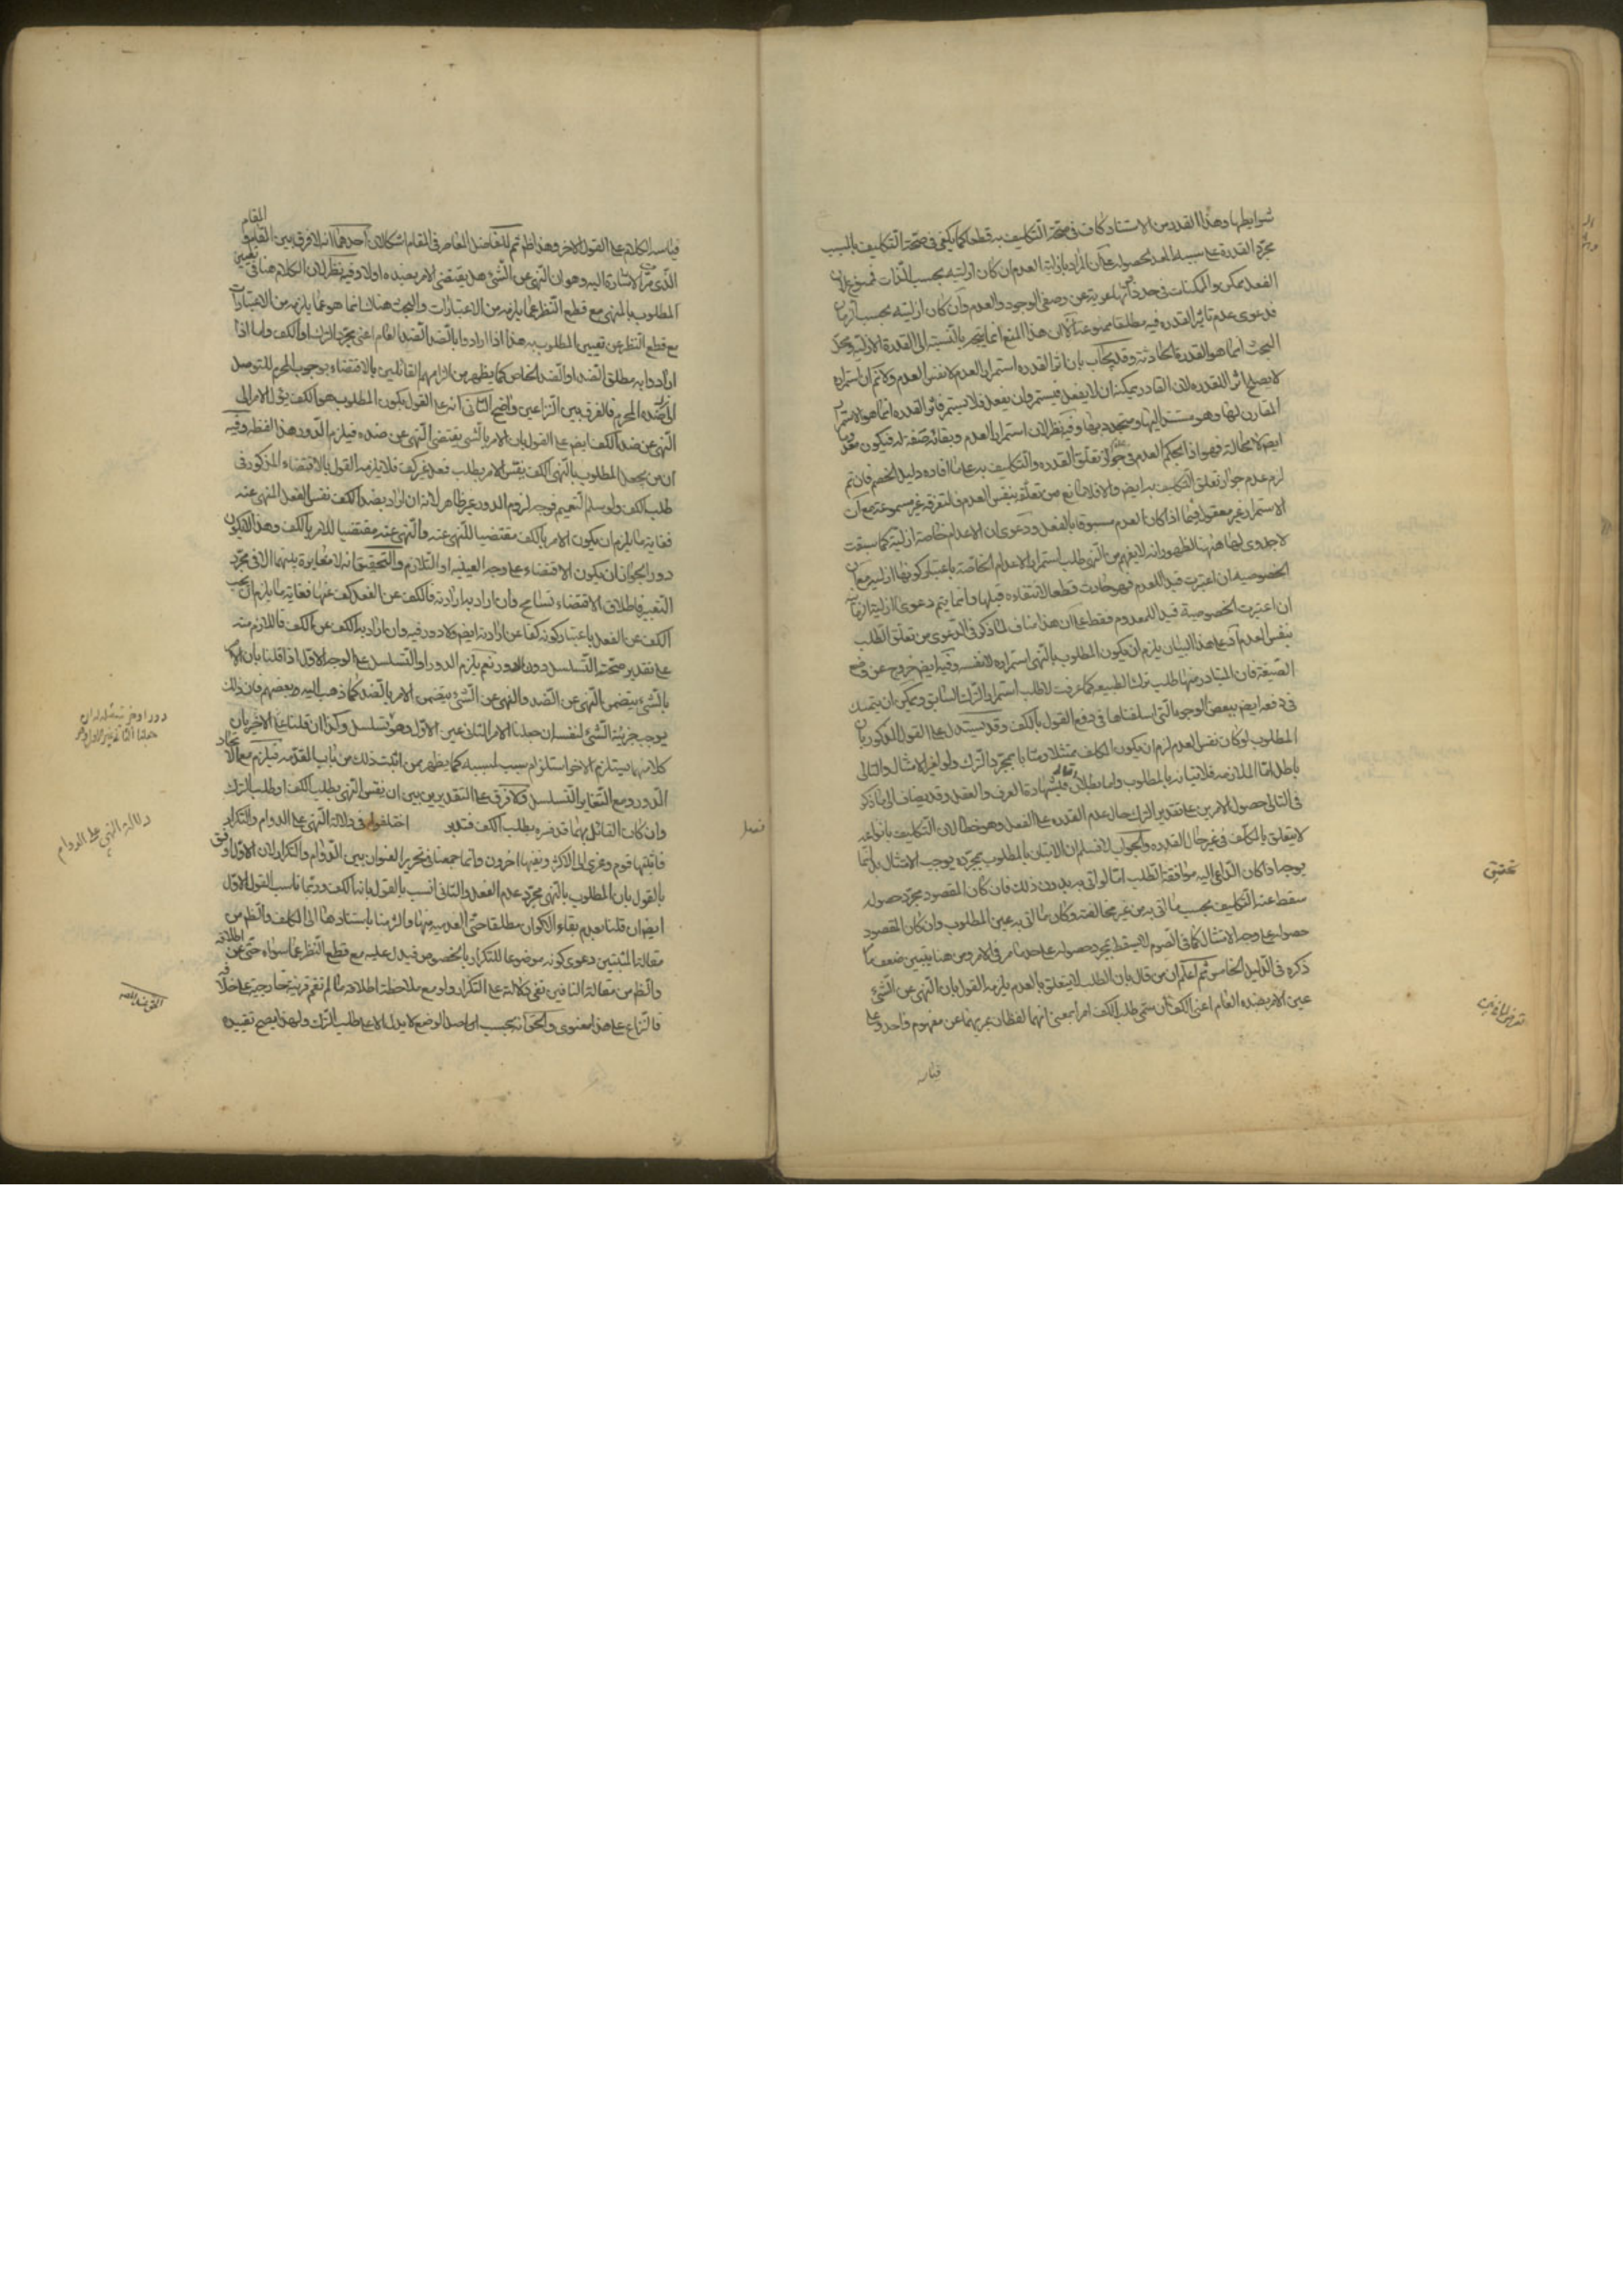 شرايطها وهذا القدر من الاستناد كاف فى صحة التكليف به قطعا كما يكفى فى صحة التكليف بالسبب
مجرد القدرة على سببه المعد لحصوله على ان المراد بازلية العدم ان كان ازليته بحسب الذات فممنوع لان
الفعل ممكن والممكنات فى حدود ذاتها عرية عن وصفى الوجود والعدم وان كان ازليته بحسب الزمان
فدعوى عدم تاثير القدره فيه مطلقا ممنوعة الا ان هذا المنع انما يتجه بالنسبة الى القدرة الازلية ومحل
البحث انما هو القدرة الحادثة وقد يجاب بان اثر القدره استمرار العدم لا نفس العدم ولا نم ان استمراره
لا يصلح اثرا للقدره لان القادر يمكنه ان لا يفعل فيستمر وان يفعل فلا يستمر فاثر القدره انما هو الاستمرار
المقارن لها وهو مستند اليها ومتجدد بها وفيه نظر لان استمرار العدم وبقائه صفة له فيكون عدميا
ايض لا محالة فهو اذا كحكم العدم فى جواز تعلق القدره والتكليف به على ما افاده دليل الخصم فان تم
لزم عدم جواز تعلق التكليف به ايض والا فلا مانع من تعلقه بنفس العدم فالتفرقه غير مسموعة مع ان
الاستمرار غير معقول فيما اذا كان العدم مسبوقا بالفعل ودعوى ان الاعدام الخاصة ازلية كما سبقت
لا جدوى لها هنا لظهور انه لا يفهم من النهى طلب استمرار الاعدام الخاصة باعتبار كونها ازلية مع ان
الخصوصيه ان اعتبرت قيدا للعدم فهو حادث قطعا لانتفاءه قبلها وانما يتم دعوى الازلية الزمانية
ان اعتبرت الخصوصية قيدا للمعدوم فقط على ان هذا مناف لما ذكر فى الدعوى من تعلق الطلب
بنفس العدم اذ على هذا البيان يلزم ان يكون المطلوب بالنهى استمراره لا نفسه وفيه ايض خروج عن وضع
الصيغة فان المتبادر منها طلب ترك الطبيعه كما عرفت لا طلب استمرار الترك السابق ويمكن ان يتمسك
فى دفعه ايض ببعض الوجوه التى اسلفناها فى دفع القول بالكف وقد يستدل على القول المذكور بان
المطلوب لو كان نفس العدم لزم ان يكون المكلف ممتثلا ومثابا بمجرد الترك ولو لغير الامتثال والتالى
باطل اما الملازمه فلاتيانه بالمطلوب واما بطلان التالى فبشهادة العرف والعقل وقد يضاف الى ما ذكر
فى التالى حصول الامرين على تقدير الترك حال عدم القدره على الفعل وهو خطا لان التكليف بانواعه
لا يتعلق بالمكلف فى غير حال القدره والجواب لا نسلم ان الاتيان بالمطلوب بمجرده يوجب الامتثال بل انما
يوجبه اذا كان الداعى اليه موافقة الطلب اما لو اتى به بدون ذلك فان كان المقصود مجرد حصوله
سقط عنه التكليف بحسب ما اتى به من غير مخالفته وكان ما اتى به عين المطلوب وان كان المقصود
حصوله على وجه الامتثال كما فى الصوم لا يسقط بمجرد حصوله على حد ما مر فى الامر ومن هنا يتبين ضعف ما
ذكره فى الدليل الخامس ثم اعلم ان من قال بان الطلب لا يتعلق بالعدم يلزمه القول بان النهى عن الشئ
عين الامر بضده العام اعنى الكف ان سمى طلب الكف امرا بمعنى انهما لفظان عبر بهما عن مفهوم واحد وعلى
قياسه
تحقيق
قياسه الكلام على القول الاخر وهذا ظ ثم للفاضل المعاصر فى المقام اشكالان احدهما انه لا فرق بين المقام و
المقام
الذى مر الاشارة اليه وهو ان النهى عن الشئ هل يقتضى الامر بضده اولا وفيه نظر لان الكلام هنا فى تعيين
المطلوب بالنهى مع قطع النظر عما يلزمه من الاعتبارات والبحث هناك انما هو عما يلزمه من الاعتبارات
مع قطع النظر عن تعيين المطلوب به هذا اذا ارادوا بالضد الضد العام اعنى مجرد الترك او الكف واما اذا
ارادوا به مطلق الضد او الضد الخاص كما يظهر من الزامهم القائلين بالاقتضاء بوجوب المحرم للتوصل
الى ضده المحرم فالفرق بين النزاعين واضح الثانى انه على القول بكون المطلوب هو الكف يؤل الامر الى
النهى عن ضد الكف ايض على القول بان الامر بالشئ يقتضى النهى عن ضده فيلزم الدور هذا لفظه وفيه
ان من يجعل المطلوب بالنهى الكف يفسر الامر بطلب فعل غير كف فلا يلزمه القول بالاقتضاء المذكور فى
طلب الكف ولو سلم التعميم فوجه لزوم الدور غير ظاهر لانه ان اراد بضد الكف نفس الفعل المنهى عنه
فغاية ما يلزم ان يكون الامر بالكف مقتضيا للنهى عنه والنهى عنه مقتضيا للامر بالكف وهذا لا يكون
دورا لجواز ان يكون الاقتضاء على وجه العينية او التلازم والتحقيق انه لا مغايرة بينهما الا فى مجرد
التعبير فاطلاق الاقتضاء تسامح وان اراد به ارادته فالكف عن الفعل كف عنها فغاية ما يلزم ان يجب
الكف عن الفعل باعتبار كونه كفا عن ارادته ايض ولا دور فيه وان اراد به الكف عن الكف فاللازم منه
على تقدير صحته التسلسل دون الدور نعم يلزم الدور او التسلسل على الوجه الاول اذا قلنا بان الامر
بالشئ يتضمن النهى عن الضد والنهى عن الشئ يتضمن الامر بالضد كما ذهب اليه بعضهم فان ذلك
يوجب جزئية الشئ لنفسه ان جعلنا الامر الثانى عين الاول وهو تسلسل وكذا ان قلنا بان
كلا منهما يستلزم الاخر استلزام سبب لمسببه كما يظهر ممن اثبت ذلك من باب المقدمه فيلزم مع الاتحاد
الدور ومع التغاير التسلسل ولا فرق على التقديرين بين ان يفسر النهى بطلب الكف او طلب الترك
وان كان القائل بهما قد فسره بطلب الكف فتدبر
فصل
اختلفوا فى دلالة النهى على الدوام والتكرار
فاثبتها قوم وعزى الى الاكثر ونفيها اخرون وانما جمعنا فى تحرير العنوان بين الدوام والتكرار لان الاول اوفق
بالقول بان المطلوب بالنهى مجرد عدم الفعل والثانى انسب بالقول بانه الكف وربما ناسب القول الاول
ايض ان قلنا بعدم بقاء الاكوان مطلقا حتى العدميه منها والزمنا باستنادها الى المكلف والظ من
مقالة المثبتين دعوى كونه موضوعا للتكرار بالخصوص فيدل عليه مع قطع النظر عما سواه حتى عن اطلاقه
والظ من مقالة النافين نفى دلالته على التكرار ولو مع ملاحظة اطلاقه ما لم تقم قرينة خارجية على خلافه
فالنزاع على هذا معنوى والحق انه بحسب اصل الوضع لا يدل الا على طلب الترك ولهذا يصح تقييده
دلالة النهى على الدوام